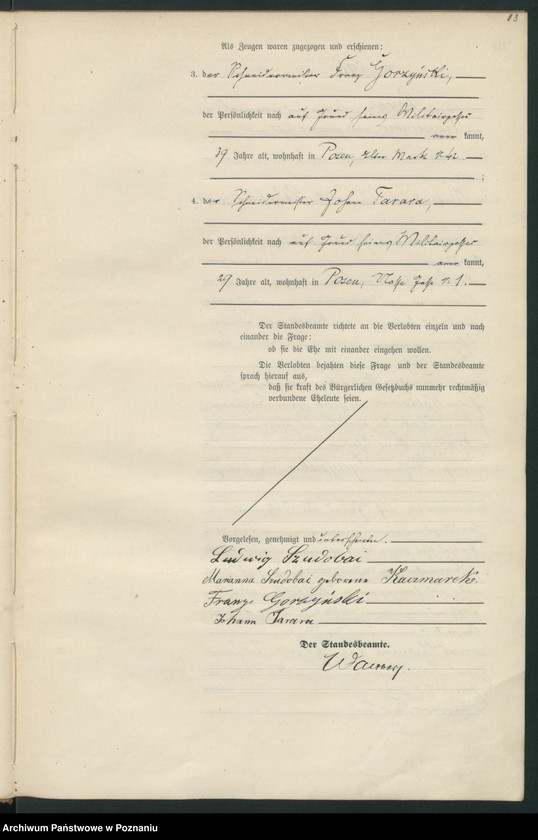 83
Als Zeugen waren zugezogen und erschienen:
3. der Schneidermeister Franz Gorzyński,
der Persönlichkeit nach auf Grund seines Militairpasses
kannt,
39 Jahre alt, wohnhaft in Posen, alter Markt № 42
;
4. der Schneidermeister Johann Tarara,
der Persönlichkeit nach auf Grund seines Militairpasses
kannt,
29 Jahre alt, wohnhaft in Posen, № 1.
Der Standesbeamte richtete an die Verlobten einzeln und nach
einander die Frage:
ob sie die Ehe mit einander eingehen wollen.
Die Verlobten bejahten diese Frage und der Standesbeamte
sprach hierauf aus,
daß sie kraft des Bürgerlichen Gesetzbuchs nunmehr rechtmäßig
verbundene Eheleute seien.
Vorgelesen, genehmigt und unterschrieben.
Ludwig Szudobai
Marianna Szudobai geborene Kaczmarek
Franz Gorzyński
Johann Tarara
Der Standesbeamte.
Archiwum Państwowe w Poznaniu